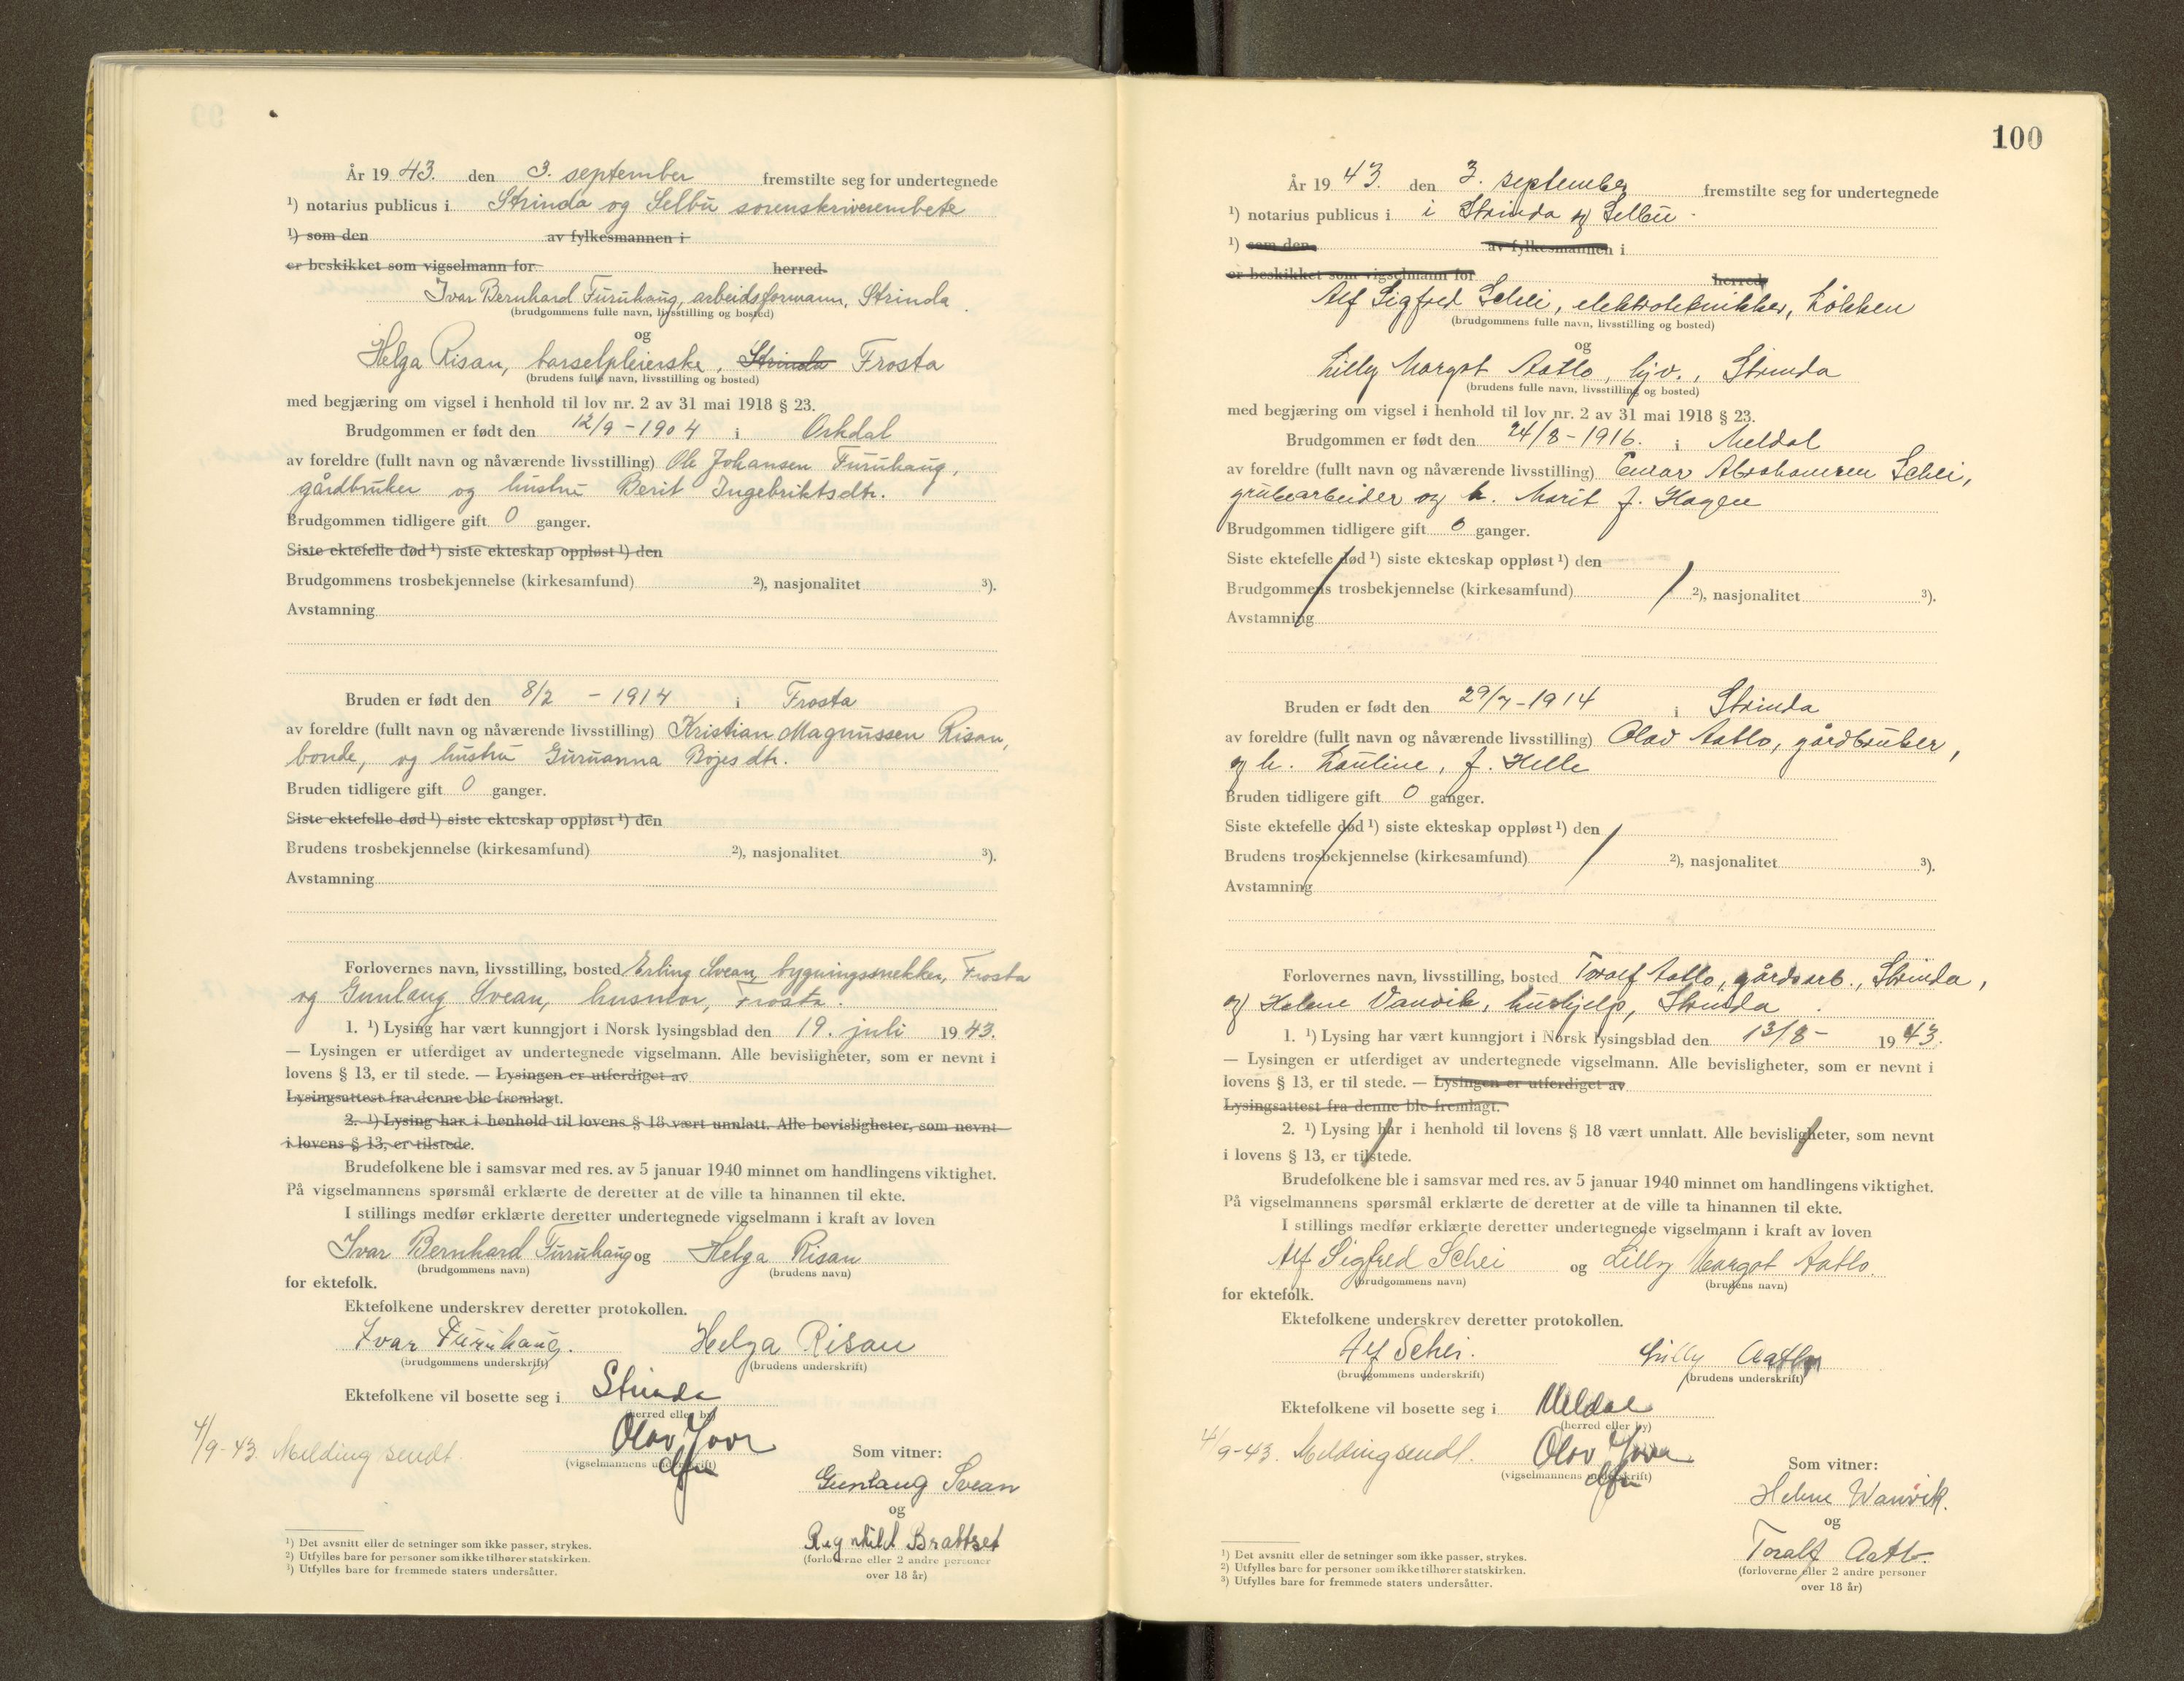 År 19 43. den 3. september fremstilte seg for undertegnede
¹) notarius publicus i Strinda og Selbu sorenskriverembete
¹) som den av fylkesmannen i
er beskikket som vigselmann for herred
Ivar Bernhard Furuhaug, arbeidsformann, Strinda.
(brudgommens fulle navn, livsstilling og bosted)
og
Helga Risan, barselpleierske, Strinda Frosta
(brudens fulle navn, livsstilling og bosted)
med begjæring om vigsel i henhold til lov nr. 2 av 31 mai 1918 § 23.
Brudgommen er født den 12/9 - 1904 i Orkdal
av foreldre (fullt navn og nåværende livsstilling) Ole Johansen Furuhaug,
gårdbruker og hustru Berit Ingebriktsdtr.
Brudgommen tidligere gift 0 ganger.
Siste ektefelle død ¹) siste ekteskap oppløst ¹) den
Brudgommens trosbekjennelse (kirkesamfund) ²), nasjonalitet ³).
Avstamning
Bruden er født den 8/2 - 1914 i Frosta
av foreldre (fullt navn og nåværende livsstilling) Kristian Magnussen Risan,
bonde, og hustru Guruanna Bojesdtr.
Bruden tidligere gift 0 ganger.
Siste ektefelle død ¹) siste ekteskap oppløst ¹) den
Brudens trosbekjennelse (kirkesamfund) ²), nasjonalitet ³).
Avstamning
Forlovernes navn, livsstilling, bosted Erling Svean, bygningssnekker, Frosta
og Gunlaug Svean, husmor, Frosta.
1. ¹) Lysing har vært kunngjort i Norsk lysingsblad den 19. juli 19 43.
— Lysingen er utferdiget av undertegnede vigselmann. Alle bevisligheter, som er nevnt i
lovens § 13, er til stede. — Lysingen er utferdiget av
Lysingsattest fra denne ble fremlagt.
2. ¹) Lysing har i henhold til lovens § 18 vært unnlatt. Alle bevisligheter, som nevnt
i lovens § 13, er tilstede.
Brudefolkene ble i samsvar med res. av 5 januar 1940 minnet om handlingens viktighet.
På vigselmannens spørsmål erklærte de deretter at de ville ta hinannen til ekte.
I stillings medfør erklærte deretter undertegnede vigselmann i kraft av loven
Ivar Bernhard Furuhaug og Helga Risan
(brudgommens navn) (brudens navn)
for ektefolk.
Ektefolkene underskrev deretter protokollen.
Ivar Furuhaug. Helga Risan
(brudgommens underskrift) (brudens underskrift)
Ektefolkene vil bosette seg i Strinda
(herred eller by)
4/9-43. Melding sendt. Olav
(vigselmannens underskrift)
Som vitner:
Gunlaug Svean
og
Ragnhild Brattset
(forloverne eller 2 andre personer
over 18 år)
¹) Det avsnitt eller de setninger som ikke passer, strykes.
²) Utfylles bare for personer som ikke tilhører statskirken.
³) Utfylles bare for fremmede staters undersåtter.
100
År 19 43. den 3. september fremstilte seg for undertegnede
¹) notarius publicus i i Strinda og Selbu.
¹) som den av fylkesmannen i
er beskikket som vigselmann for herred
Alf Sigfred Schei, elektrotekniker, Løkken
(brudgommens fulle navn, livsstilling og bosted)
og
Lilly Margot Aatlo, hjv., Strinda
(brudens fulle navn, livsstilling og bosted)
med begjæring om vigsel i henhold til lov nr. 2 av 31 mai 1918 § 23.
Brudgommen er født den 24/8 - 1916. i Meldal
av foreldre (fullt navn og nåværende livsstilling) Einar Abrahamsen Schei,
grubearbeider og h. Marit f. Hagen
Brudgommen tidligere gift 0 ganger.
Siste ektefelle død ¹) siste ekteskap oppløst ¹) den
Brudgommens trosbekjennelse (kirkesamfund) ²), nasjonalitet ³).
Avstamning
Bruden er født den 29/7 - 1914 i Strinda
av foreldre (fullt navn og nåværende livsstilling) Olav Aatlo, gårdbruker,
og h. Pauline, f. Helle
Bruden tidligere gift 0 ganger.
Siste ektefelle død ¹) siste ekteskap oppløst ¹) den
Brudens trosbekjennelse (kirkesamfund) ²), nasjonalitet ³).
Avstamning
Forlovernes navn, livsstilling, bosted Toralf Aatlo, gårdsarb., Strinda,
og Helene Vanvik, hushjelp, Strinda.
1. ¹) Lysing har vært kunngjort i Norsk lysingsblad den 13/8 - 19 43.
— Lysingen er utferdiget av undertegnede vigselmann. Alle bevisligheter, som er nevnt i
lovens § 13, er til stede. — Lysingen er utferdiget av
Lysingsattest fra denne ble fremlagt.
2. ¹) Lysing har i henhold til lovens § 18 vært unnlatt. Alle bevisligheter, som nevnt
i lovens § 13, er tilstede.
Brudefolkene ble i samsvar med res. av 5 januar 1940 minnet om handlingens viktighet.
På vigselmannens spørsmål erklærte de deretter at de ville ta hinannen til ekte.
I stillings medfør erklærte deretter undertegnede vigselmann i kraft av loven
Alf Sigfred Schei og Lilly Margot Aatlo.
(brudgommens navn) (brudens navn)
for ektefolk.
Ektefolkene underskrev deretter protokollen.
Alf Schei. Lilly Aatlo
(brudgommens underskrift) (brudens underskrift)
Ektefolkene vil bosette seg i Meldal
(herred eller by)
4/9-43. Melding sendt. Olav
(vigselmannens underskrift)
Som vitner:
Helene Wanvik.
og
Toralf Aatlo
(forloverne eller 2 andre personer
over 18 år)
¹) Det avsnitt eller de setninger som ikke passer, strykes.
²) Utfylles bare for personer som ikke tilhører statskirken.
³) Utfylles bare for fremmede staters undersåtter.